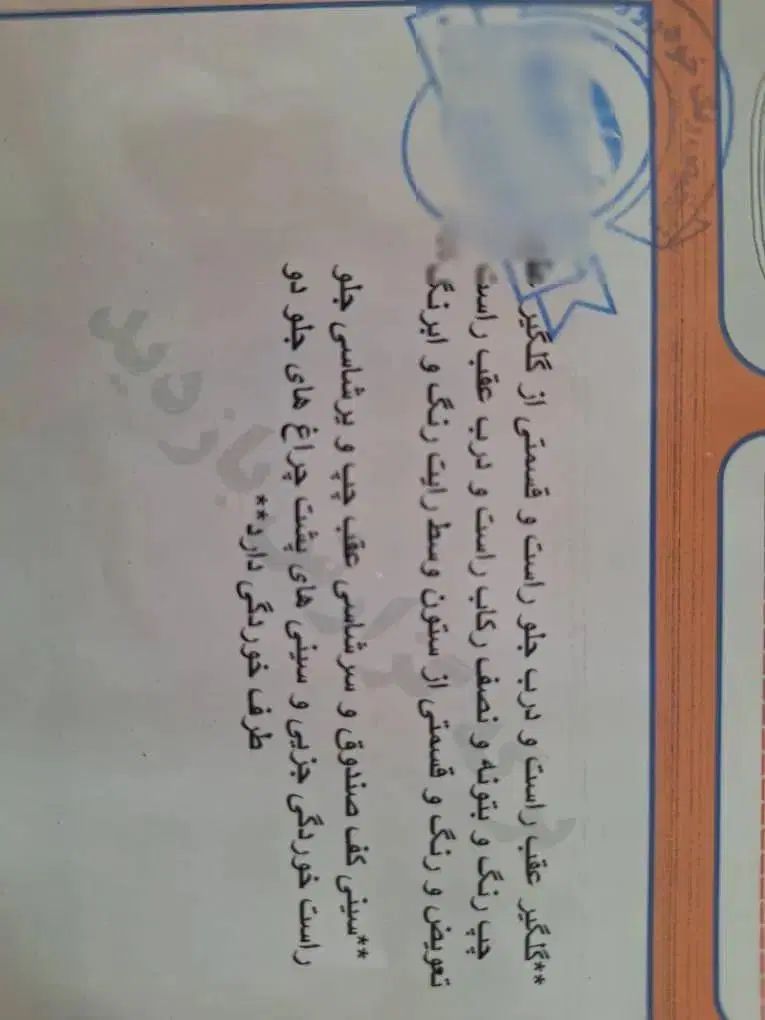 **گلگیر عقب راست و درب جلو راست و قسمتی از گلگیر
چپ رنگ و بتونه و نصف رکاب راست و درب عقب راست
تعویض و رنگ و قسمتی از ستون وسط رایت رنگ و ابرنگ
**سینی کف صندوق و سرشاسی عقب چپ و یرشاسی جلو
راست خوردگی جزیی و سینی های پشت چراغ های جلو دو
طرف خوردگی دارد**
بازدید